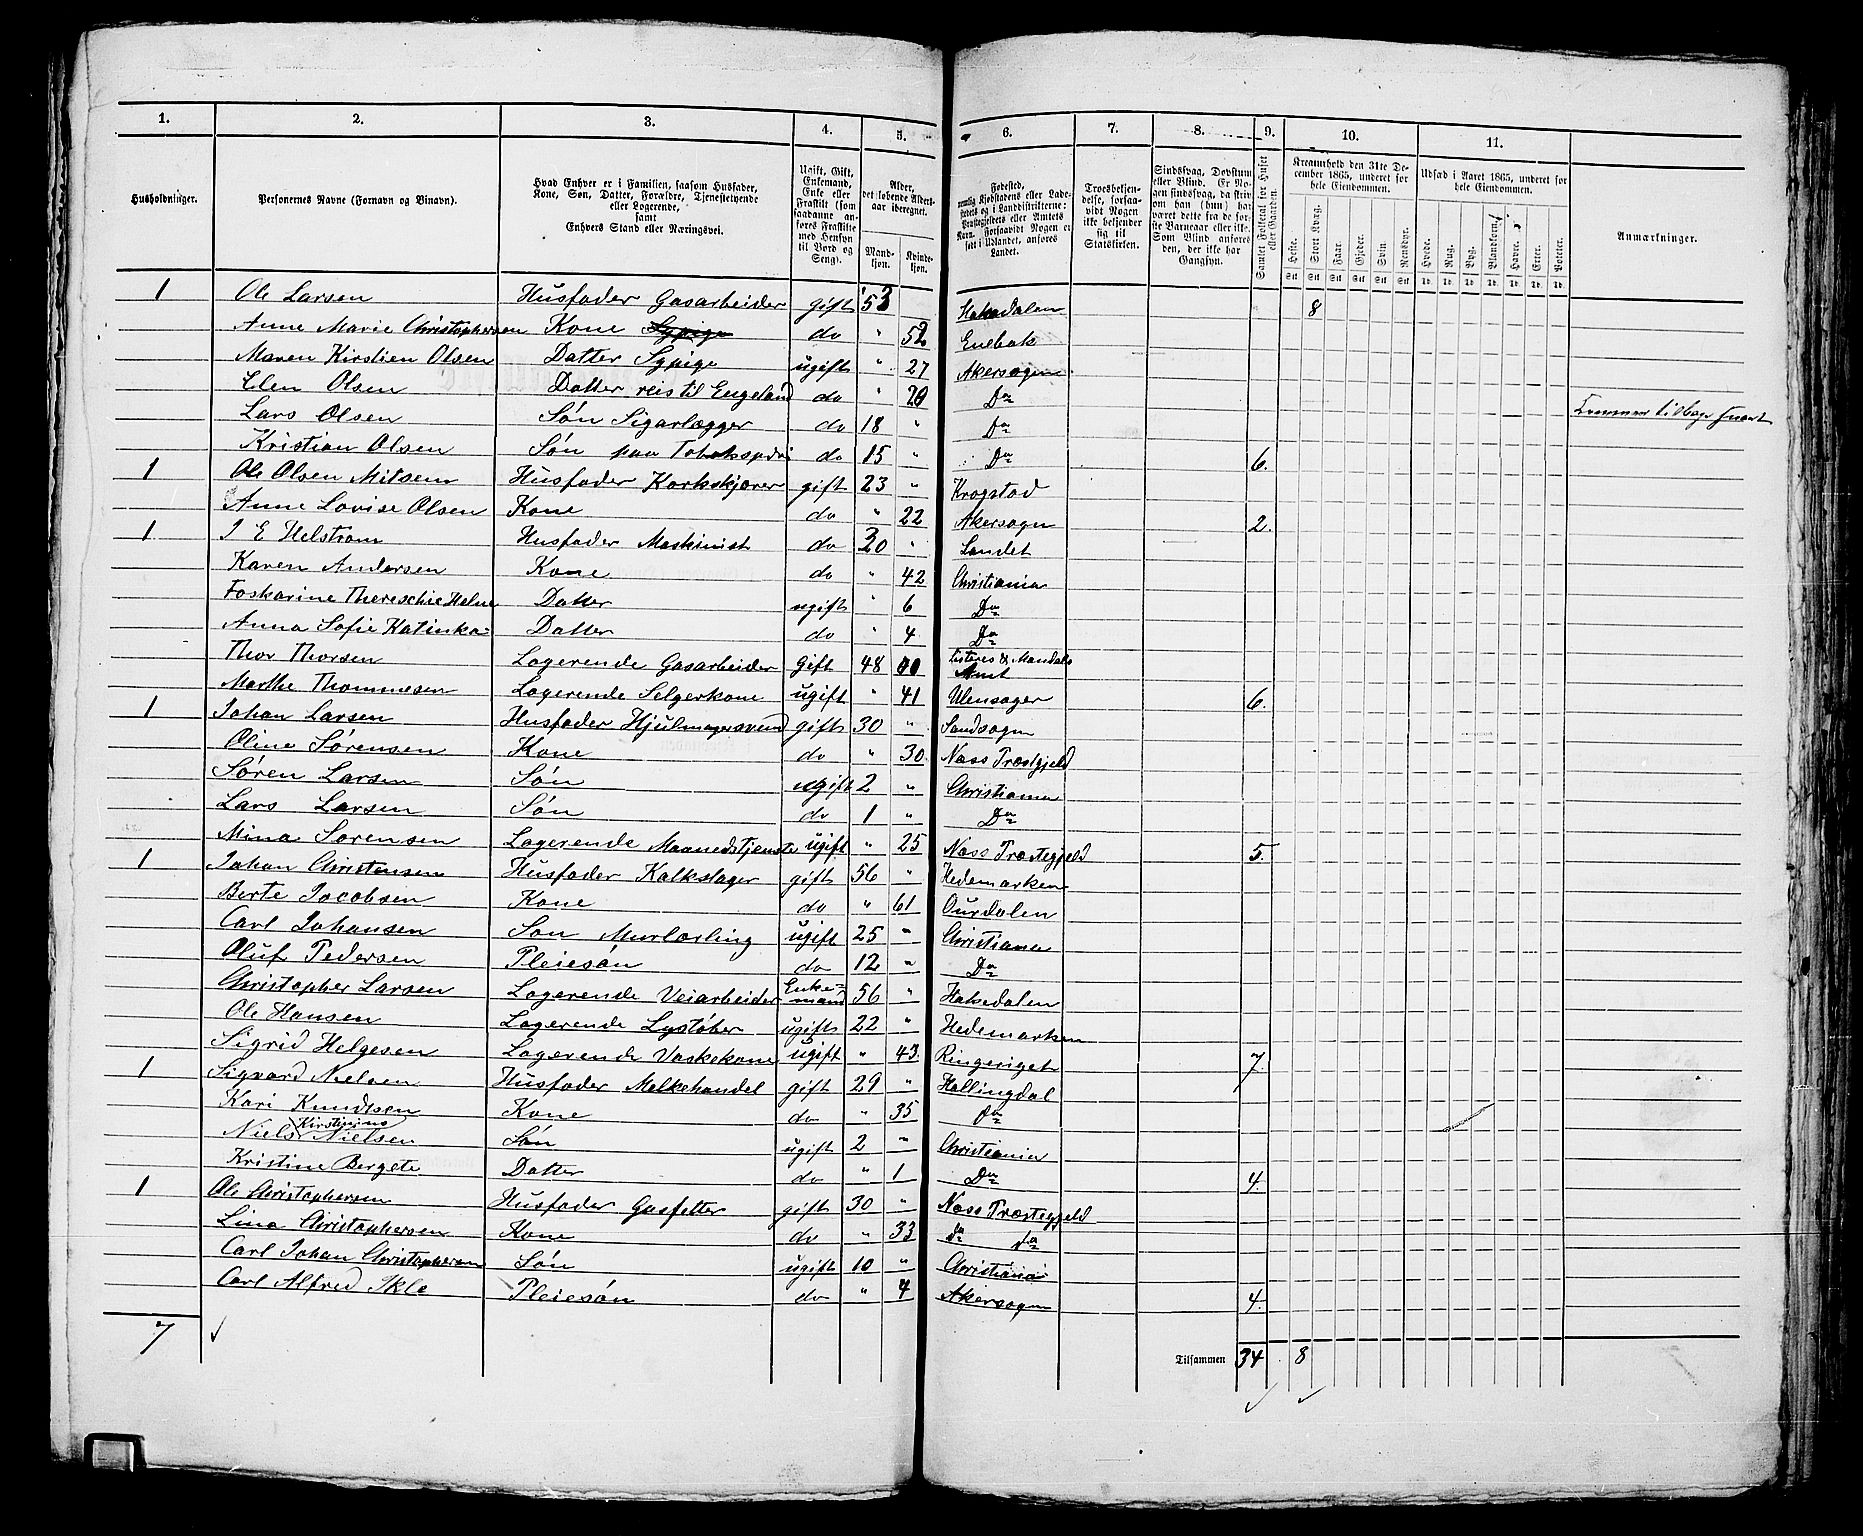 1. 2. 3. 4. 5. 6. 7. 8. 9. 10. 11.
Husholdninger. Personernes Navne (Fornavn og Binavn). Hvad Enhver er i Familien, saasom Husfader, Kone, Søn, Datter, Forældre, Tjenestetyende eller Logerende, samt Enhvers Stand eller Næringsvei. Ugift, Gift, Enkemand, Enke eller Fraskilt (som saadanne anføres Fraskilte med Hensyn til Bord og Seng). Alder, det løbende Aldersaar iberegnet. Mandkjøn. Kvindekjøn. Fødested, Troesbekjendelse, forsaavidt Nogen ikke bekjender sig til Statskirken. Sindssvag, Døvstum eller Blind. Samlet Folketal for Huset eller Gaarden. Kreaturhold den 31te December 1865, underet for hele Eiendommen. Udsæd i Aaret 1865, underet for hele Eiendommen. Anmærkninger.
Heste. Stort Kvæg. Faar. Gjeder. Svin. Rensdyr. Hvede. Rug. Byg. Blandkorn. Havre. Erter. Poteter.
1 Ole Larsen Husfader Gasarbeider gift 53 Hakadalen 8
Anne Marie Christophersen Kone do " 52 Enebak
Maren Kirstien Olsen Datter Sypige ugift " 27 Akersogen
Elen Olsen Datter reis til Engeland do " 20 Do Kommer tilbage snart
Lars Olsen Søn Sigarlægger do 18 " Do
Kristian Olsen Søn paa do 15 " Do 6.
1 Ole Olsen Milsem Husfader Korkskjærer gift 23 " Krogstad
Anne Lovise Olsen Kone do " 22 Akersogen 2.
1 J E Helstrom Husfader Maskinist do 30 " Landet
Karen Andersen Kone do " 42 Christiania
Foskarine Thereschie Helene Datter ugift " 6 Do
Anna Sofie Katinka Datter do " 4 Do
Thor Thorsen Logerende Gasarbeider Gift 48 Listeres & Mandals Amt
Marthe Thommesen Logerende Selgerkone ugift " 41 Ulensager 6.
1 Johan Larsen Husfader Hjulmagersvend gift 30 " Sandsogen
Oline Sørensen Kone do " 30 Næss Præstgjeld
Søren Larsen Søn ugift 2 " Christiania
Lars Larsen Søn do 1 " Do
Mina Sørensen Logerende Maanedstjeneste ugift " 25 Næss Præstegjeld 5.
1 Johan Christensen Husfader Kalkslager gift 56 " Hedemarken
Berte Jacobsen Kone do " 61 Ourdalen
Carl Johansen Søn Murlærling ugift 25 " Christiania
Oluf Pedersen Pleiesøn do 12 " Do
Christopher Larsen Logerende Veiarbeider Enkemand 56 " Hakedalen
Ole Hansen Logerende Lystøber ugift 22 " Hedemarken
Sigrid Helgesen Logerende Vaskekone ugift " 43 Ringeriget 7.
1 Sigvard Nielsen Husfader Melkehandel gift 29 " Hallingdal
Kari Knudtsen Kone do " 35 Do
Niels Kirstinius Nielsen Søn ugift 2 " Christiania
Kristine Bergete Datter do " 1 Do 4.
1 Ole Christophersen Husfader Gasfetter gift 30 " Næss Præstegjeld
Lina Christophersen Kone do " 33 do do
Carl Johan Christophersen Søn ugift 10 " Christiania
Carl Alfred Ikle Pleiesøn do " 4 Akersogen 4.
7 Tilsammen 34 8